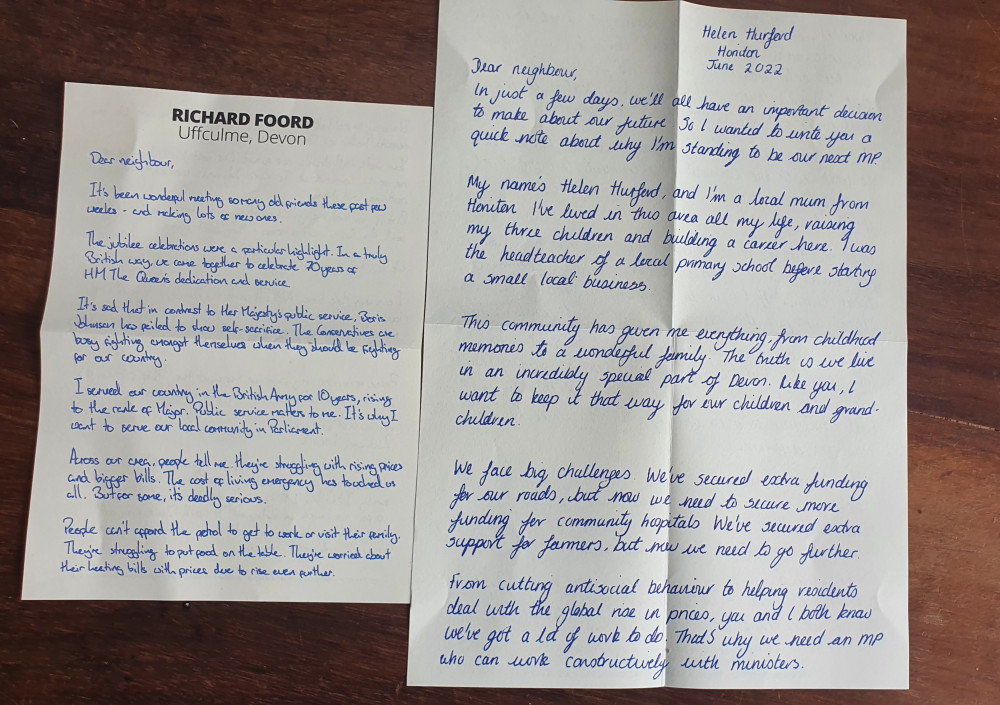 RICHARD FOORD
Uffculme, Devon
Dear neighbour,
It's been wonderful meeting so many old friends these past few
weeks - and making lots of new ones.
The jubilee celebrations were a particular highlight. In a truly
British way, we came together to celebrate 70 years of
HM The Queen's dedication and service
It's sad that in contrast to Her Majesty's public service, Boris
Johnson has failed to show self-sacrifice. The Conservatives are
busy fighting amongst themselves when they should be fighting
for our country.
I served our country in the British Army for 10 years, rising
to the rank of Major. Public service matters to me. It's why I
want to serve our local community in Parliament.
Across our area, people tell me they're struggling with rising prices
and bigger bills. The cost of living emergency has touched us
all. But for some, it's deadly serious.
People can't afford the petrol to get to work or visit their family.
They're struggling to put food on the table. They're worried about
their heating bills with prices due to rise even further.
Helen Hurford
Honiton
June 2022
Dear neighbour,
In just a few days, we'll all have an important decision
to make about our future. So I wanted to write you a
quick note about why I'm standing to be our next MP
My name's Helen Hurford, and I'm a local mum from
Honiton. I've lived in this area all my life, raising
my three children and building a career here. I was
the headteacher of a local primary school before starting
a small local business.
This community has given me everything, from childhood
memories to a wonderful family. The truth is we live
in an incredibly special part of Devon. Like you, I
want to keep it that way for our children and grand-
children.
We face big challenges. We've secured extra funding
for our roads, but now we need to secure more
funding for community hospitals We've secured extra
support for farmers, but now we need to go further.
From cutting antisocial behaviour to helping residents
deal with the global rise in prices, you and I both know
we've got a lot of work to do. That's why we need an MP
who can work constructively with ministers.